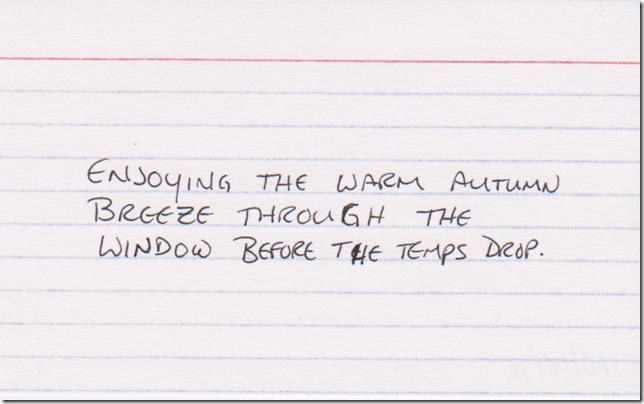 ENJOYING THE WARM AUTUMN
BREEZE THROUGH THE
WINDOW BEFORE THE TEMPS DROP.